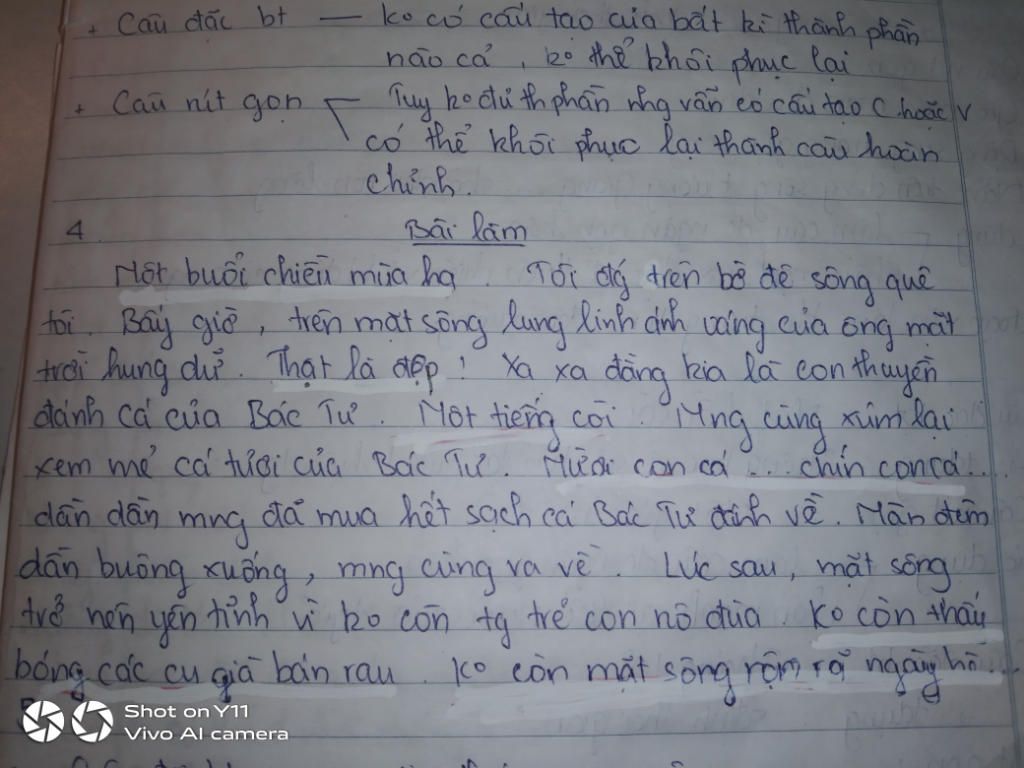 + Câu đặc bt — ko có cấu tạo của bất kì thành phần
nào cả, ko thể khôi phục lại
+ Câu rút gọn Tuy ko đủ thphần nhg vẫn có cấu tạo C hoặc V
có thể khôi phục lại thành câu hoàn
chỉnh.
4 Bài làm
Một buổi chiều mùa hạ. Tôi đứg trên bờ đê sông quê
tôi. Bấy giờ, trên mặt sông lung linh ánh váng của ông mặt
trời hung dữ. Thật là đẹp! Xa xa đằng kia là con thuyền
đánh cá của Bác Tư. Một tiếng còi. Mng cùng xúm lại
xem mẻ cá tươi của Bác Tư. Mười con cá... chín con cá...
dần dần mng đã mua hết sạch cá Bác Tư đánh về. Màn đêm
dần buông xuống, mng cùng ra về. Lúc sau, mặt sông
trở nên yên tĩnh vì ko còn tg trẻ con nô đùa. Ko còn thấy
bóng các cụ già bán rau. Ko còn mặt sông rộm rã ngày hè...
Shot on Y11
Vivo AI camera